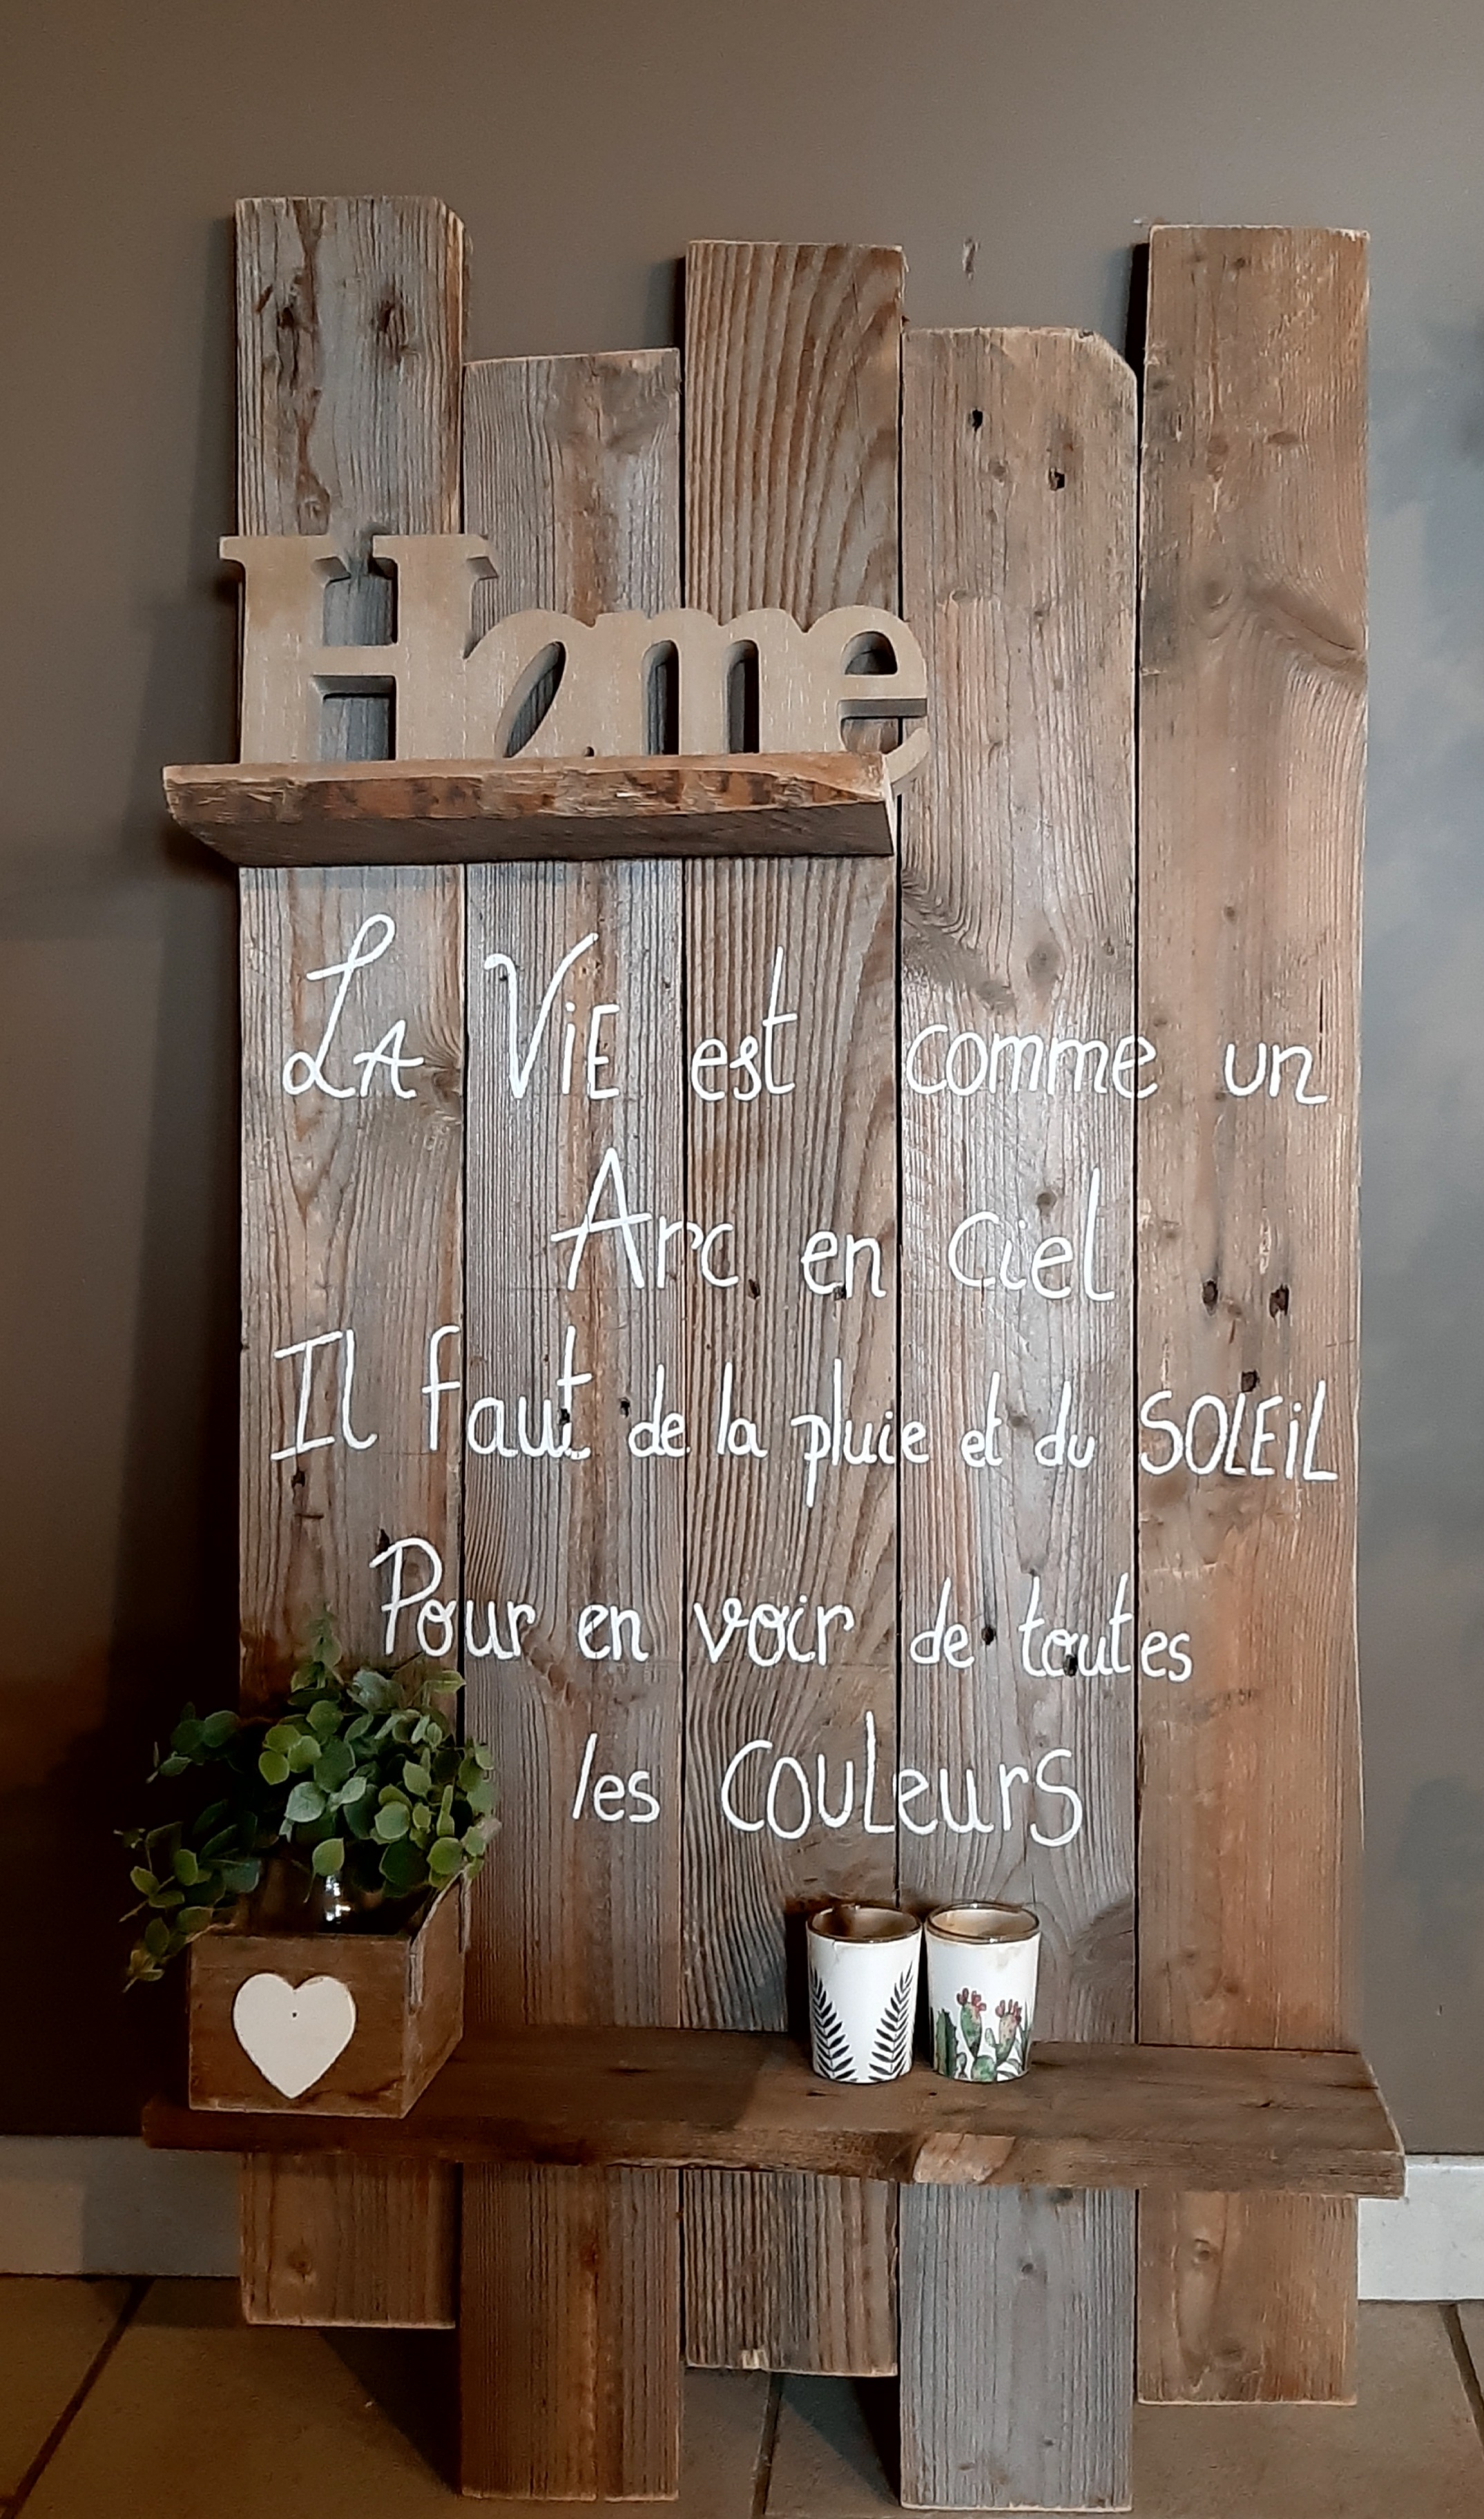 Home
LA ViE est comme un
Arc en Ciel
Il faut de la pluie et du SOLEiL
Pour en voir de toutes
les COULeurS